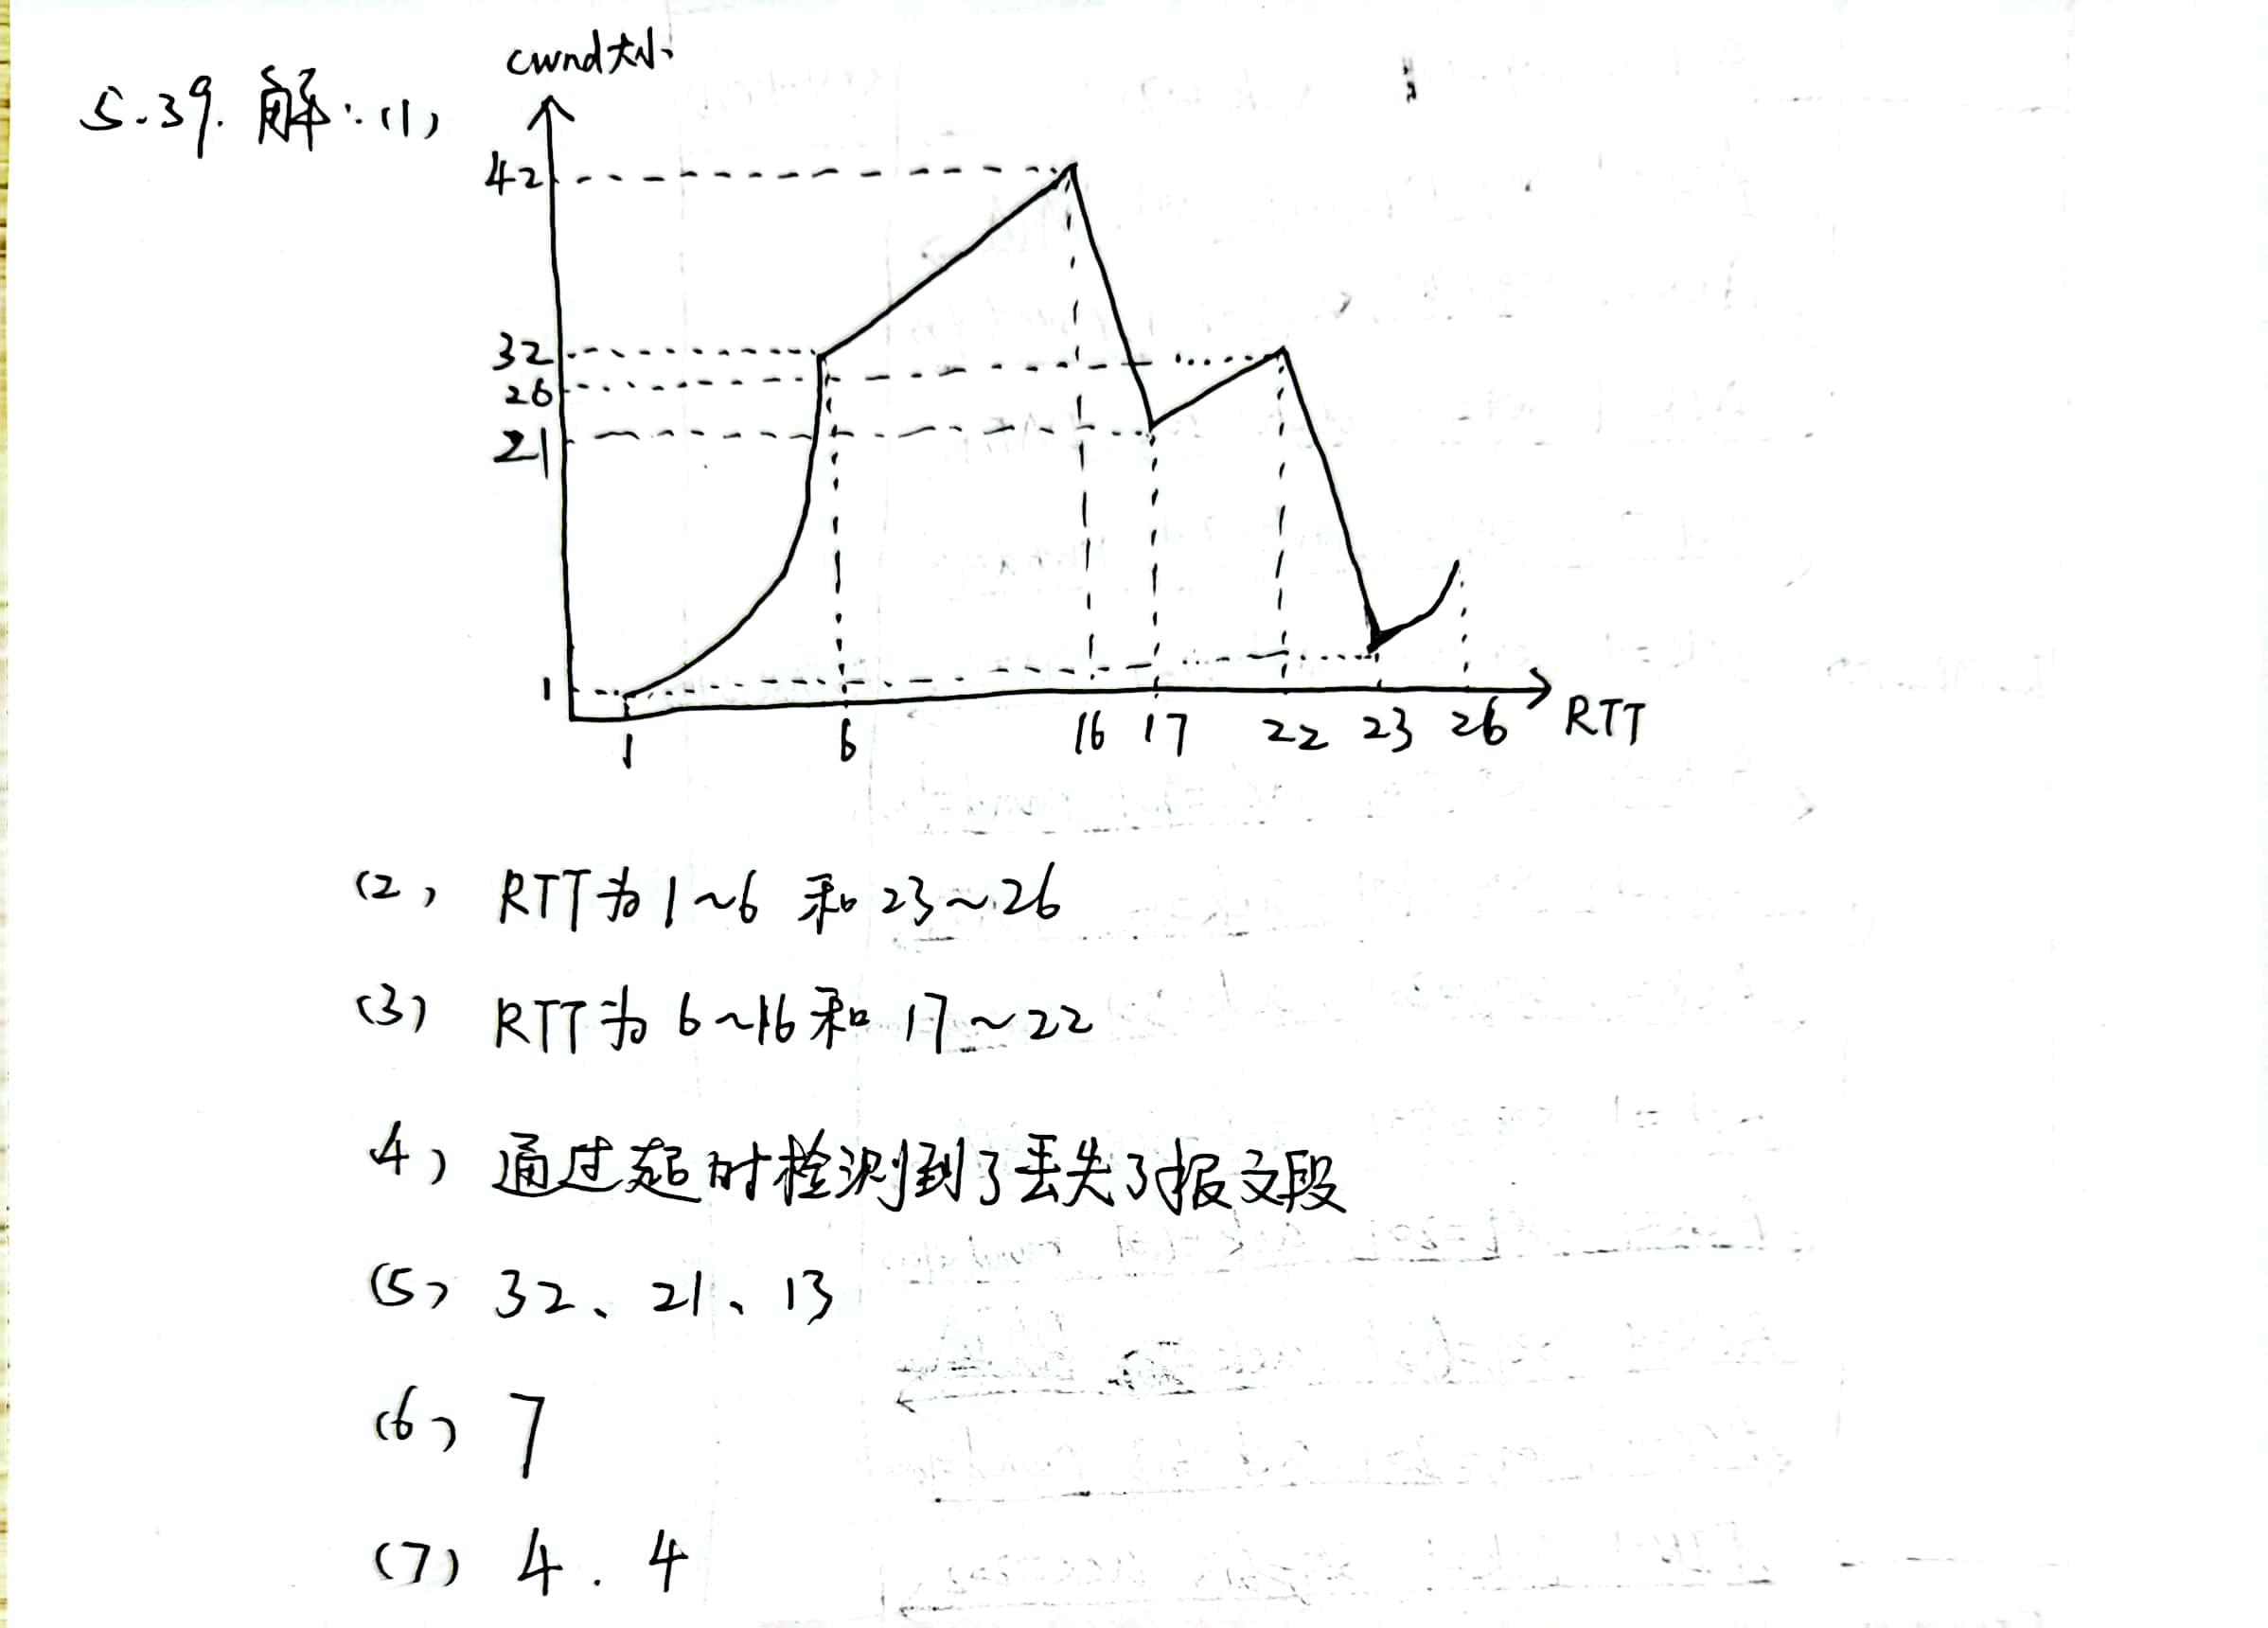 cwnd大小
5.39. 解：(1)
42
32
26
21
1
1 6 16 17 22 23 26 RTT
(2) RTT为1~6 和 23~26
(3) RTT为 6~16 和 17~22
(4) 通过超时检测到了丢失了报文段
(5) 32、21、13
(6) 7
(7) 4. 4